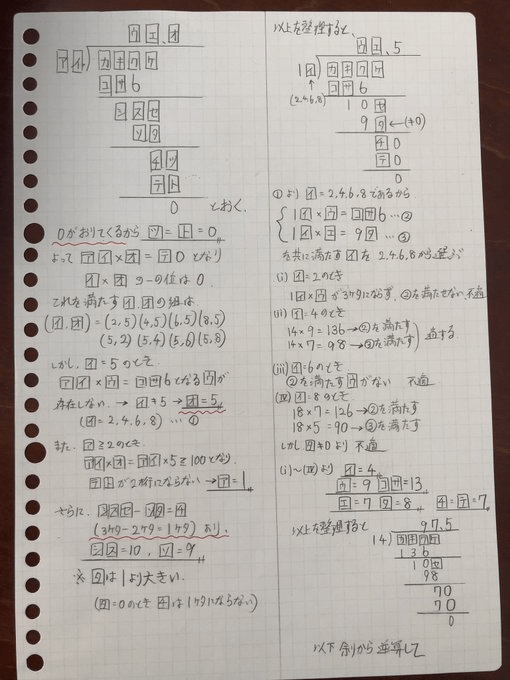 ウエ.オ
アイ)カキクケ
コサ6
シスセ
ソタ
チツ
テト
0 とおく.
0がおりてくるから ツ=ト=0
よって アイ×オ=テ0 となり
イ×オ の一の位は 0.
これを満たす イ,オ の組は
(イ,オ)=(2,5)(4,5)(6,5)(8,5)
(5,2)(5,4)(5,6)(5,8)
しかし、イ=5のとき.
アイ×ウ=コサ6となるウが
存在しない. → イ≠5 → オ=5
(イ=2,4,6,8) …①
また、ア≧2のとき.
アイ×オ=アイ×5≧100となり
テトが2桁にならない → ア=1
さらに、シスセ-ソタ=チ
(3ケタ-2ケタ=1ケタ) より、
シス=10, ソ=9
※ タは1より大きい.
(タ=0のとき チは1ケタにならない)
以上を整理すると、
ウエ.5
1イ)カキクケ
(2,4,6,8)
コサ6
10セ
9タ ←(≠0)
チ0
テ0
0
①より イ=2,4,6,8であるから
1イ×ウ=コサ6 …②
1イ×エ=9タ …③
を共に満たす イを 2,4,6,8から選ぶ
(i) イ=2のとき
1イ×ウが3ケタにならず、②を満たせない 不適
(ii) イ=4のとき
14×9=136→②を満たす
14×7=98→③を満たす
適する.
(iii) イ=6のとき
②を満たすウがない 不適
(iv) イ=8のとき
18×7=126→②を満たす
18×5=90→③を満たす
しかしタ≠0より 不適
(i)~(iv)より イ=4
ウ=9 コサ=13
エ=7 タ=8 チ=テ=7
以上を整理すると
97.5
14)カキクケ
136
10セ
98
70
70
0
以下 余りから逆算して